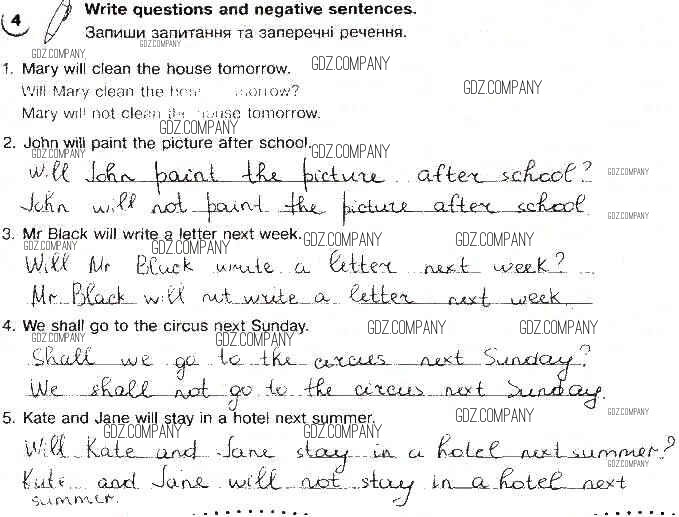 4 Write questions and negative sentences.
Запиши запитання та заперечні речення.
GDZ.COMPANY GDZ.COMPANY
1. Mary will clean the house tomorrow. GDZ.COMPANY
Will Mary clean the house tomorrow? GDZ.COMPANY
Mary will not clean the house tomorrow.
GDZ.COMPANY
2. John will paint the picture after school. GDZ.COMPANY
GDZ.COMPANY
Will John paint the picture after school? GDZ.COMPANY
John will not paint the picture after school GDZ.COMPANY
3. Mr Black will write a letter next week. GDZ.COMPANY GDZ.COMPANY
GDZ.COMPANY GDZ.COMPANY
Will Mr Black write a letter next week?
Mr. Black will not write a letter next week.
4. We shall go to the circus next Sunday. GDZ.COMPANY GDZ.COMPANY
GDZ.COMPANY GDZ.COMPANY
Shall we go to the circus next Sunday?
We shall not go to the circus next Sunday.
5. Kate and Jane will stay in a hotel next summer. GDZ.COMPANY GDZ.COMPANY
GDZ.COMPANY GDZ.COMPANY
Will Kate and Jane stay in a hotel next summer?
GDZ.COMPANY
Kate and Jane will not stay in a hotel next
summer.